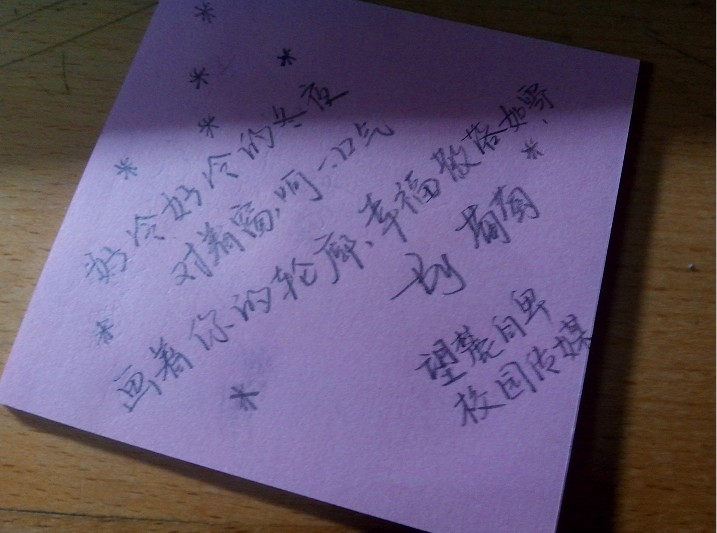 好冷好冷的冬夜
对着窗,呵一口气
画着你的轮廓、幸福散落如雪.
by 葡萄
望麓自卑
校园传媒